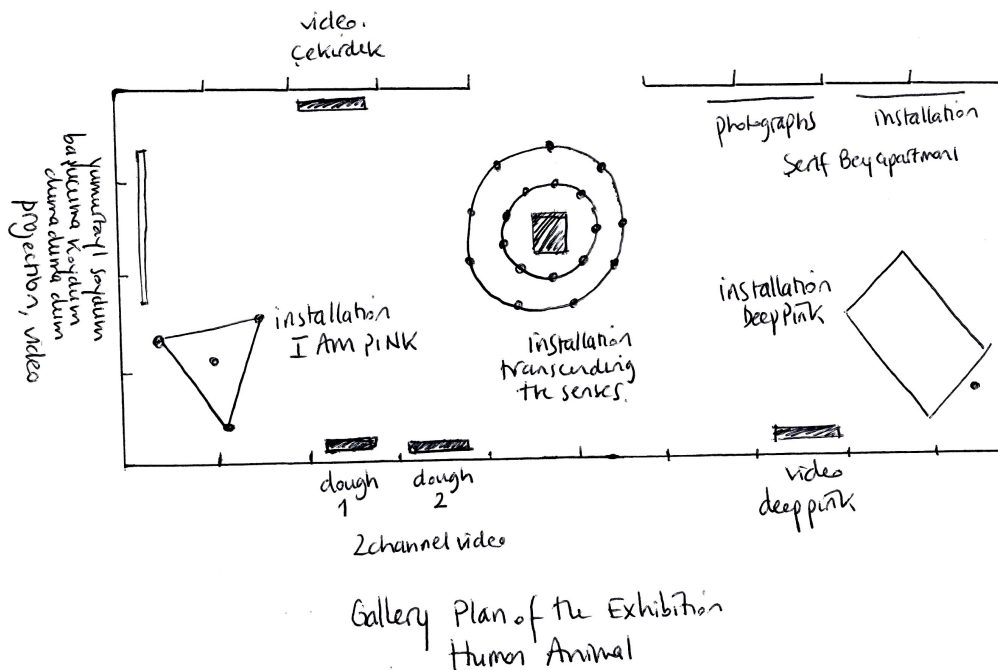 video.
Çekirdek
photographs
installation
Şerif Bey apartmanı
yumurtayı soydum
başucuma koydum
duma duma dum
projection, video
installation
I AM PiNK
installation
transcending
the senses.
installation
Deep Pink
dough
1
dough
2
2 channel video
video
deep pink
Gallery Plan of the Exhibition
Human Animal